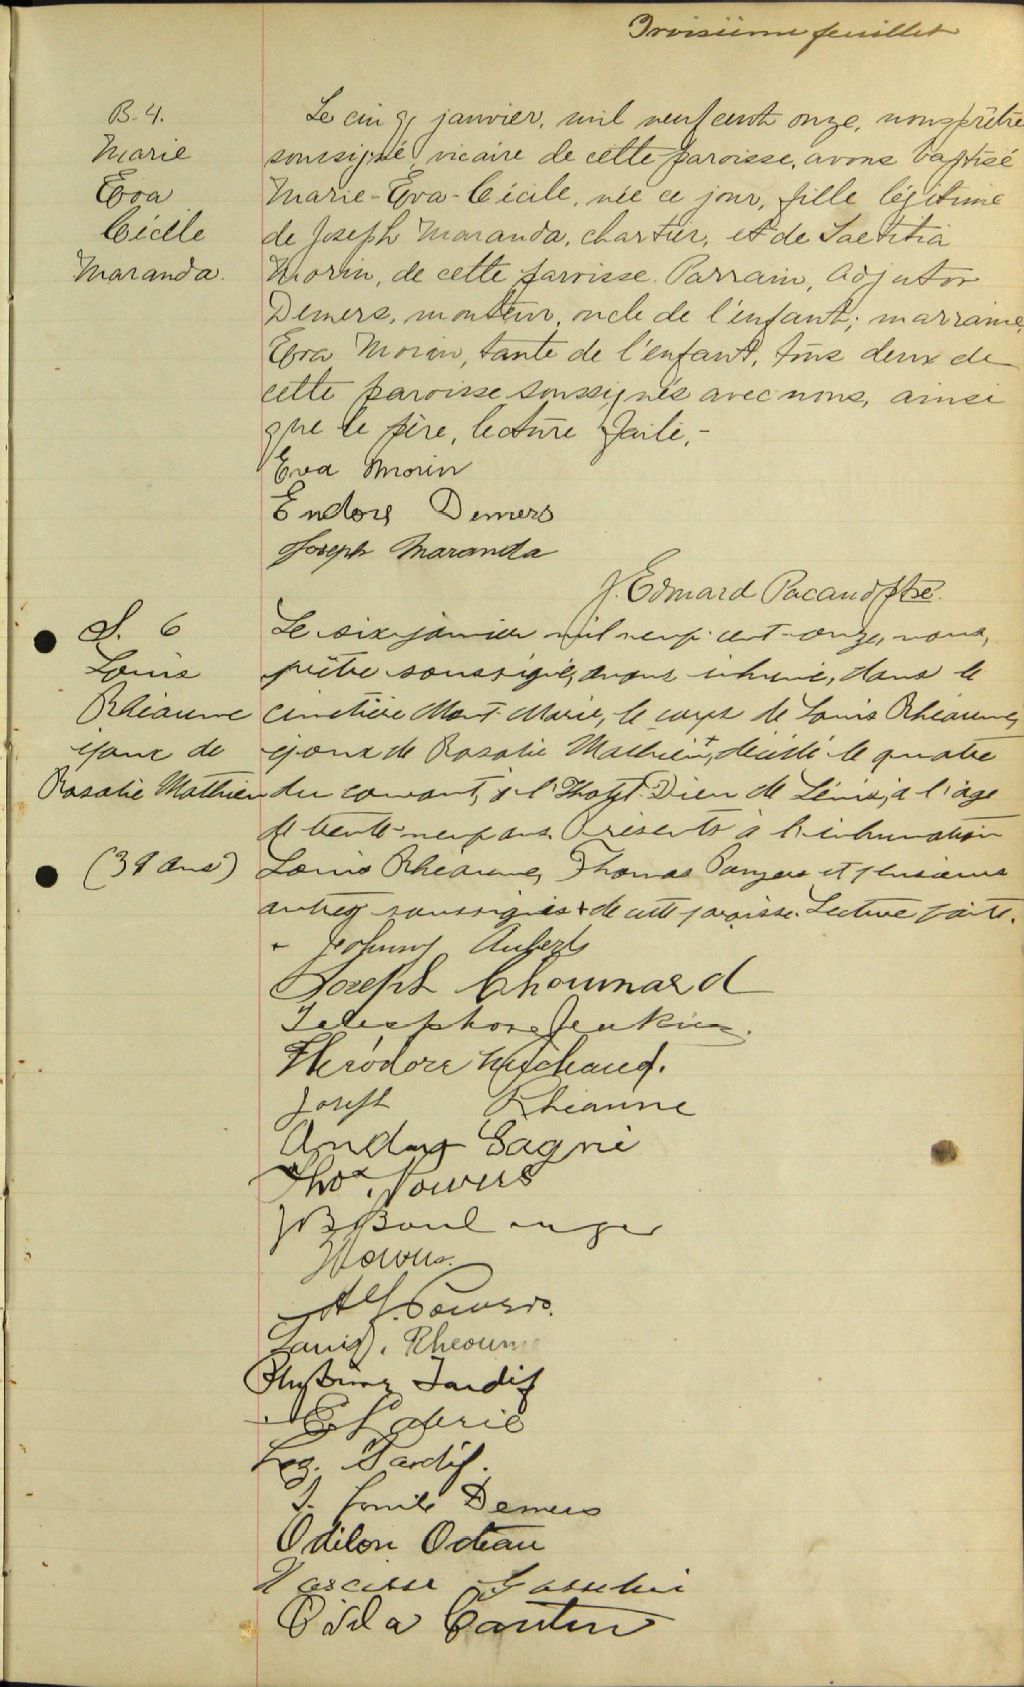 Troisième feuillet
B. 4.
Marie
Eva
Cécile
Maranda.
Le cinq janvier, mil neuf cent onze, nous prêtre
soussigné, vicaire de cette paroisse, avons baptisé
Marie-Eva-Cécile, née ce jour, fille légitime
de Joseph Maranda, chartier, et de Laetitia
Morin, de cette paroisse. Parrain, Adjutor
Demers, monteur, oncle de l'enfant; marraine,
Eva Morin, tante de l'enfant, tous deux de
cette paroisse soussignés avec nous, ainsi
que le père, lecture faite.-
Eva Morin
Demers
Joseph Maranda
J. Edmard Pacaud ptre.
S. 6
Louis
Rhéaume
époux de
Rosalie Mathieu
(39 ans)
Le six janvier mil neuf cent onze, nous,
prêtre soussigné, avons inhumé, dans le
cimetière Mont Marie, le corps de Louis Rhéaume,
époux de Rosalie Mathieu, décédé le quatre
du courant, à l'Hotel-Dieu de Lévis, à l'âge
de trente-neuf ans. Présents à l'inhumation
Louis Rhéaume, Thomas et plusieurs
autres soussignés + de cette paroisse. Lecture faite.
+ Johnny Aubert
Joseph Chouinard
Telesphore Jenkins.
Théodore Michaud.
Joseph Rheaume
Gagné
Thos. Powers
J B Boulanger
Powers.
Powers.
Louis. Rheaume
Tardif
Tardif.
J. Emile Demers
Odilon Octeau
Narcisse Gosselin
Cantin